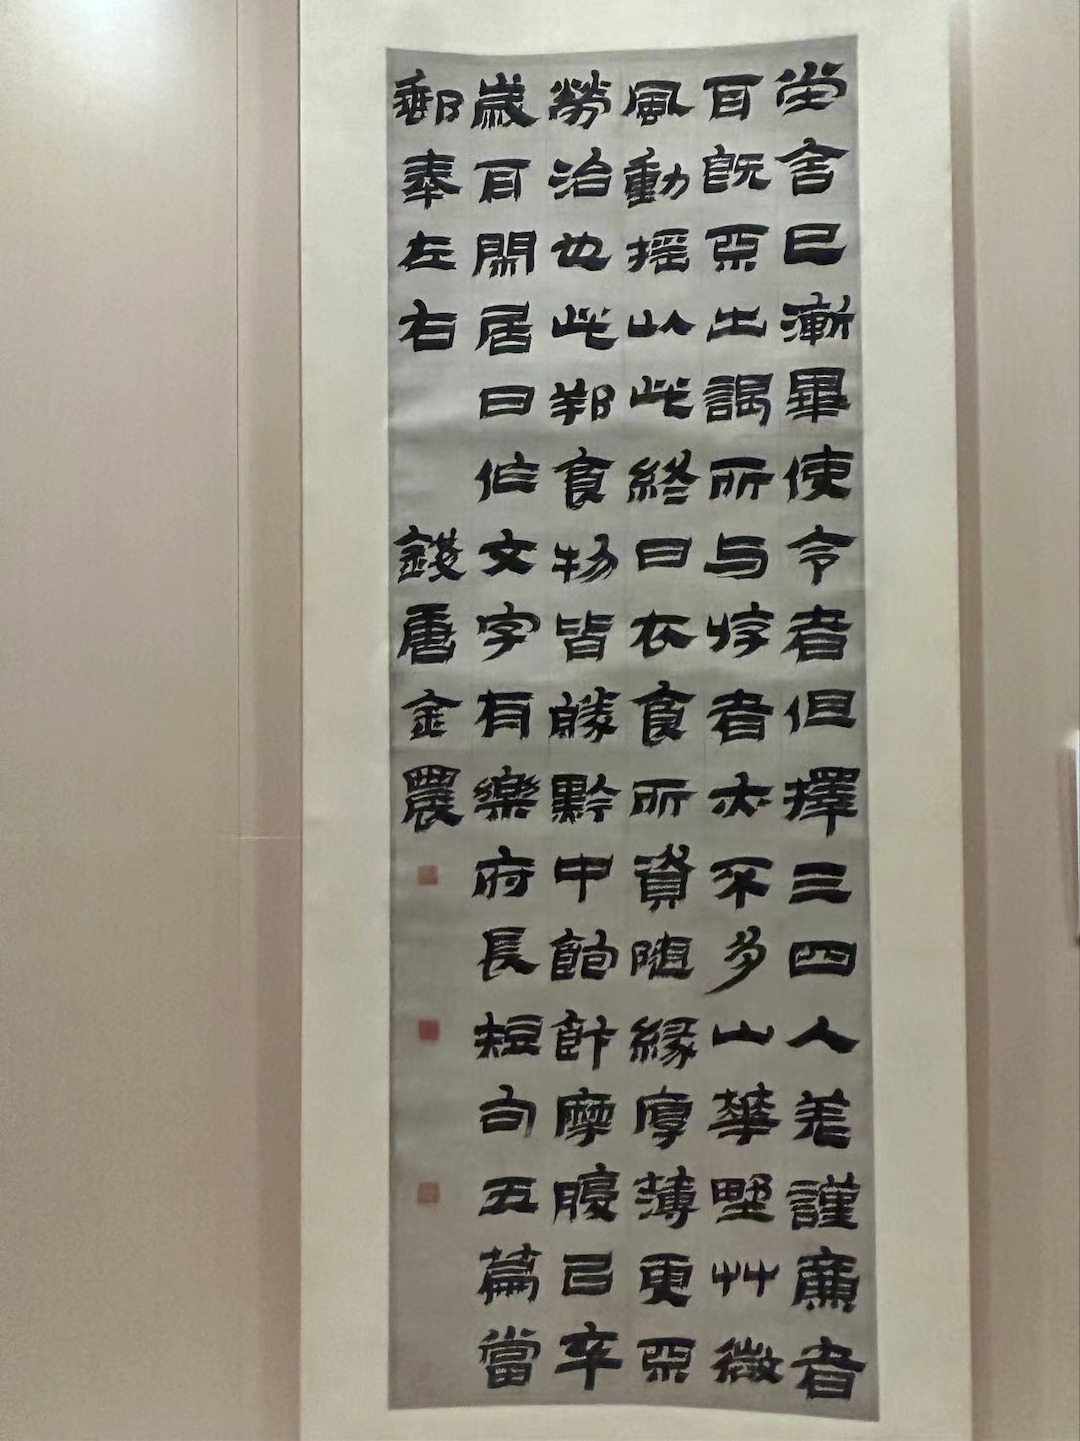 堂舍已漸畢使令者但擇三四人差謹廉者
耳既無出謁所与游者亦不多山華野艸微
風動搖以此終日衣食所資随緣厚薄更無
勞治也此邦食物皆勝黔中飽飰摩腹已卒
歲耳閒居日作文字有樂府長短句五篇當
郵奉左右 錢唐金農